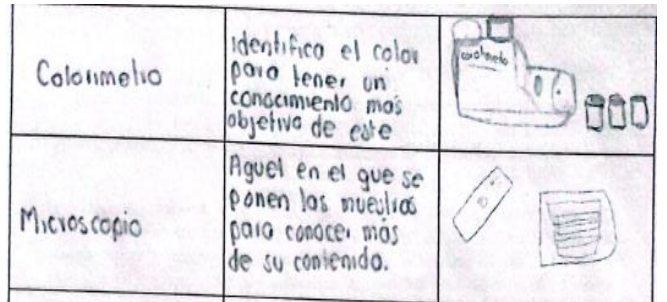 Colorimetro
identifica el color
para tener un
conocimiento mas
objetivo de este
colorimetro
Microscopio
Aquel en el que se
ponen las muestras
para conocer más
de su contenido.